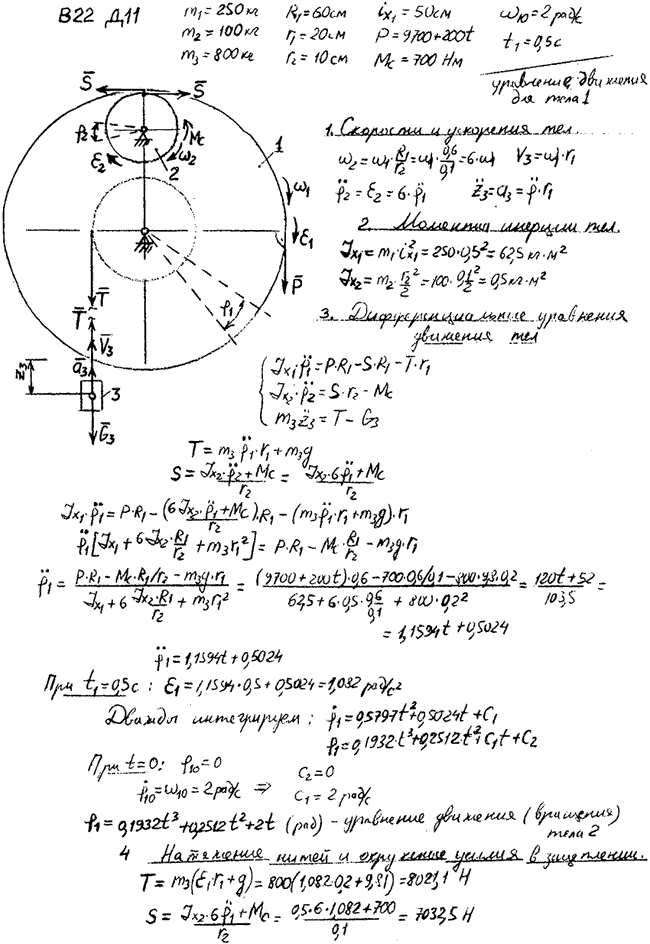 В22 Д11
m₁=250кг R₁=60см iₓ₁=50см ω₁₀=2 рад/с
m₂=100кг r₁=20см P=9700+200t t₁=0,5с
m₃=800кг r₂=10см Mc=700 Нм
уравнение движения
для тела 1
S̄ S̄
φ₂ Mc
ε₂ ω₂
2 1
ω₁
ε₁
P̄
φ₁
T̄
T̄
V̄₃
ā₃
z̈₃
3
Ḡ₃
1. Скорости и ускорения тел.
ω₂=ω₁·R₁/r₂=ω₁·0,6/0,1=6·ω₁ V₃=ω₁·r₁
φ̈₂=ε₂=6·φ̈₁ z̈₃=a₃=φ̈·r₁
2. Моменты инерции тел.
Jx₁=m₁·i²x₁=250·0,5²=62,5 кг·м²
Jx₂=m₂·r₂²/2=100·0,1²/2=0,5кг·м²
3. Дифференциальные уравнения
движения тел
Jx₁·φ̈₁=P·R₁-S·R₁-T·r₁
Jx₂·φ̈₂=S·r₂-Mc
m₃z̈₃=T-G₃
T=m₃φ̈₁·r₁+m₃g
S=(Jx₂·φ̈₂+Mc)/r₂=(Jx₂·6φ̈₁+Mc)/r₂
Jx₁·φ̈₁=P·R₁-(6Jx₂·φ̈₁+Mc)/r₂·R₁-(m₃φ̈₁·r₁+m₃g)·r₁
φ̈₁[Jx₁+6Jx₂·R₁/r₂+m₃r₁²]=P·R₁-Mc·R₁/r₂-m₃g·r₁
φ̈₁=(P·R₁-Mc·R₁/r₂-m₃g·r₁)/(Jx₁+6Jx₂·R₁/r₂+m₃r₁²)=((9700+200t)·0,6-700·0,6/0,1-800·9,8·0,2)/(62,5+6·0,5·0,6/0,1+800·0,2²)=(120t+52)/103,5=
=1,1594t+0,5024
φ̈₁=1,1594t+0,5024
При t₁=0,5с: ε₁=1,1594·0,5+0,5024=1,082 рад/с²
Дважды интегрируем: φ̇₁=0,5797t²+0,5024t+C₁
φ₁=0,1932·t³+0,2512·t²+C₁t+C₂
При t=0: φ₁₀=0 C₂=0
φ̇₁₀=ω₁₀=2рад/с ⇒ C₁=2 рад/с
φ₁=0,1932t³+0,2512t²+2t (рад) - уравнение движения (вращения)
тела 2
4 Натяжение нитей и окружные усилия в зацеплении.
T=m₃(ε₁r₁+g)=800(1,082·0,2+9,81)=8021,1 Н
S=(Jx₂·6φ̈₁+Mc)/r₂=(0,5·6·1,082+700)/0,1=7032,5 Н